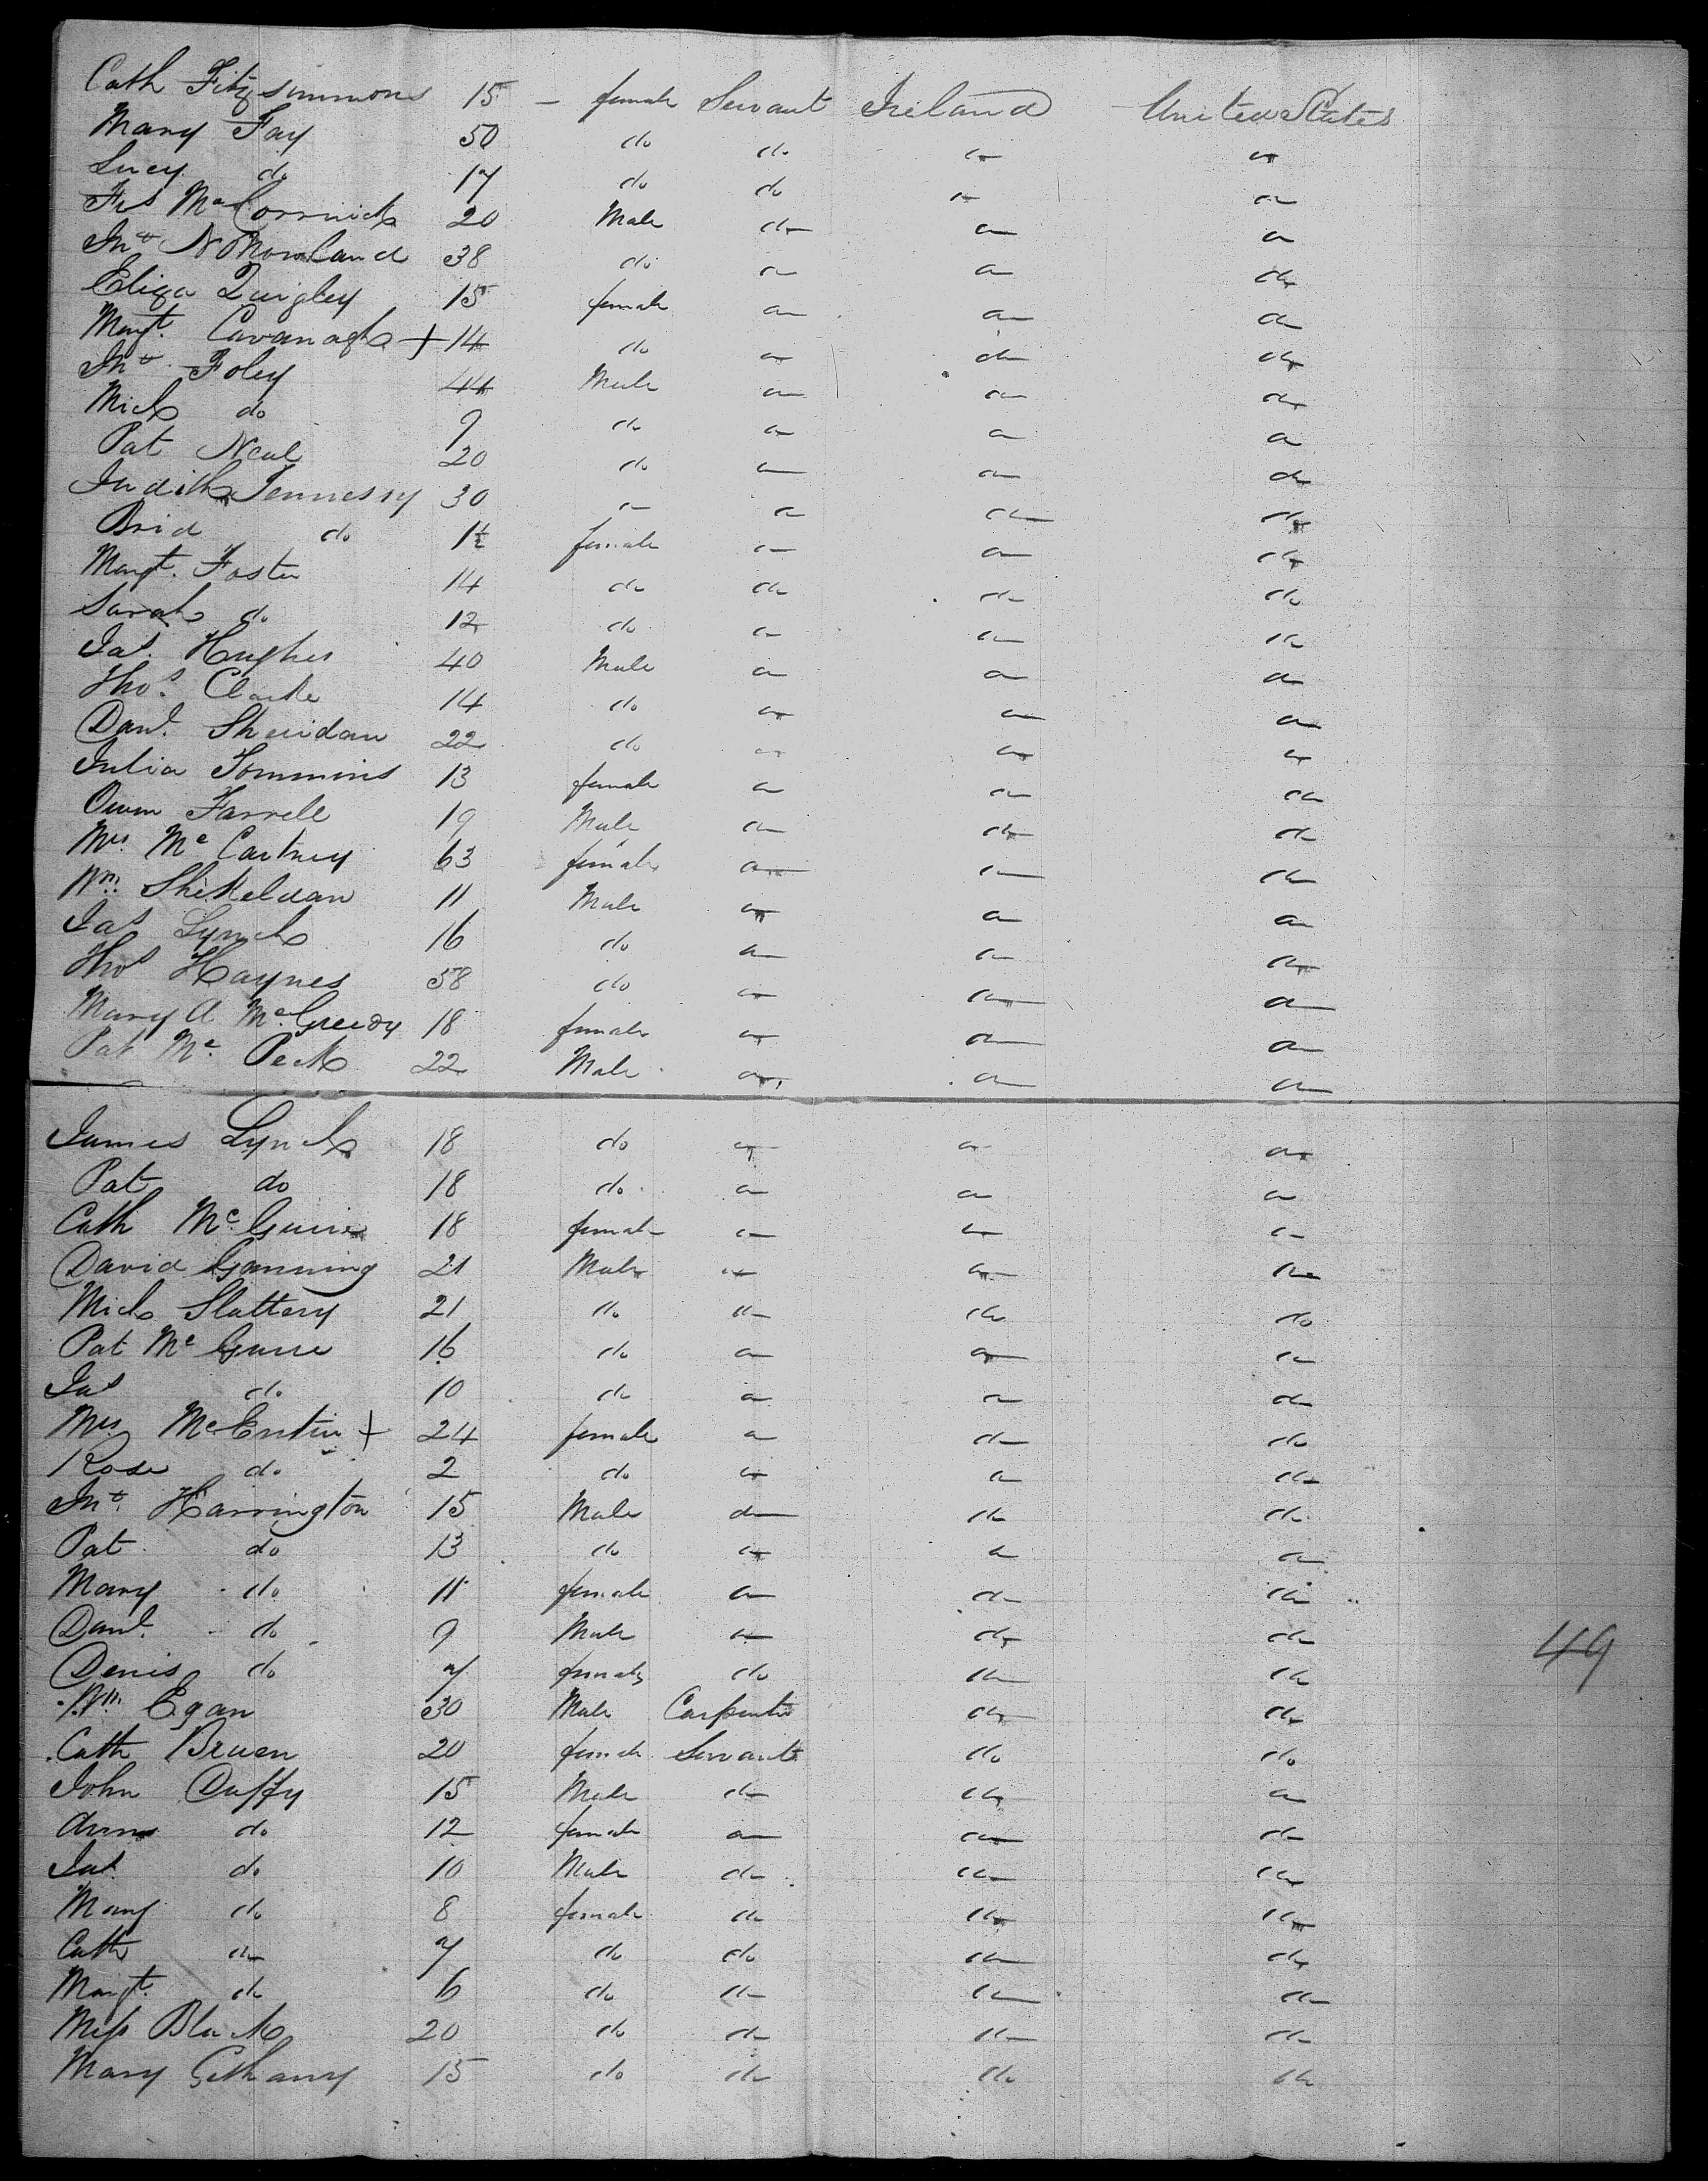 Cath Fitzsimmons 15 — female Servant Ireland United States
Mary Fay 50 do do do do
Lucy do 17 do do do do
Frs McCormick 20 Male do do do
Jno 38 do do do do
Eliza Quigley 15 female do do do
Margt. Cavanagh + 14 do do do do
Jno Foley 44 Male do do do
Mich do 9 do do do do
Pat Neal 20 do do do do
Judith Tennessy 30 do do do do
Brid do 1½ female do do do
Margt. Foster 14 do do do do
Sarah do 12 do do do do
Jas. Hughes 40 Male do do do
Thos. Clarke 14 do do do do
Danl. Sheridan 22 do do do do
Julia Tommins 13 female do do do
Owen Farrell 19 Male do do do
Mrs McCartney 63 female do do do
Wm. Shekeluan 11 Male do do do
Jas Lynch 16 do do do do
Thos Haynes 58 do do do do
Mary A McGreevy 18 female do do do
Pat Mc Peck 22 Male do do do
James Lynch 18 do do do do
Pat do 18 do do do do
Cath McGuire 18 female do do do
David Ganning 21 Male do do do
Mich Slattery 21 do do do do
Pat McGuire 16 do do do do
Jas do 10 do do do do
Mrs McEntire + 24 female do do do
Rose do 2 do do do do
Jno. Harrington 15 Male do do do
Pat do 13 do do do do
Mary do 11 female do do do
Danl. do 9 Male do do do
49
Denis do 7 female do do do
Wm Egan 30 Male Carpenter do do
Cath Bruen 20 female Servant do do
John Duffy 15 Male do do do
Ann do 12 female do do do
Jas do 10 Male do do do
Mary do 8 female do do do
Cath do 7 do do do do
Margt. do 6 do do do do
Miss Black 20 do do do do
Mary 15 do do do do